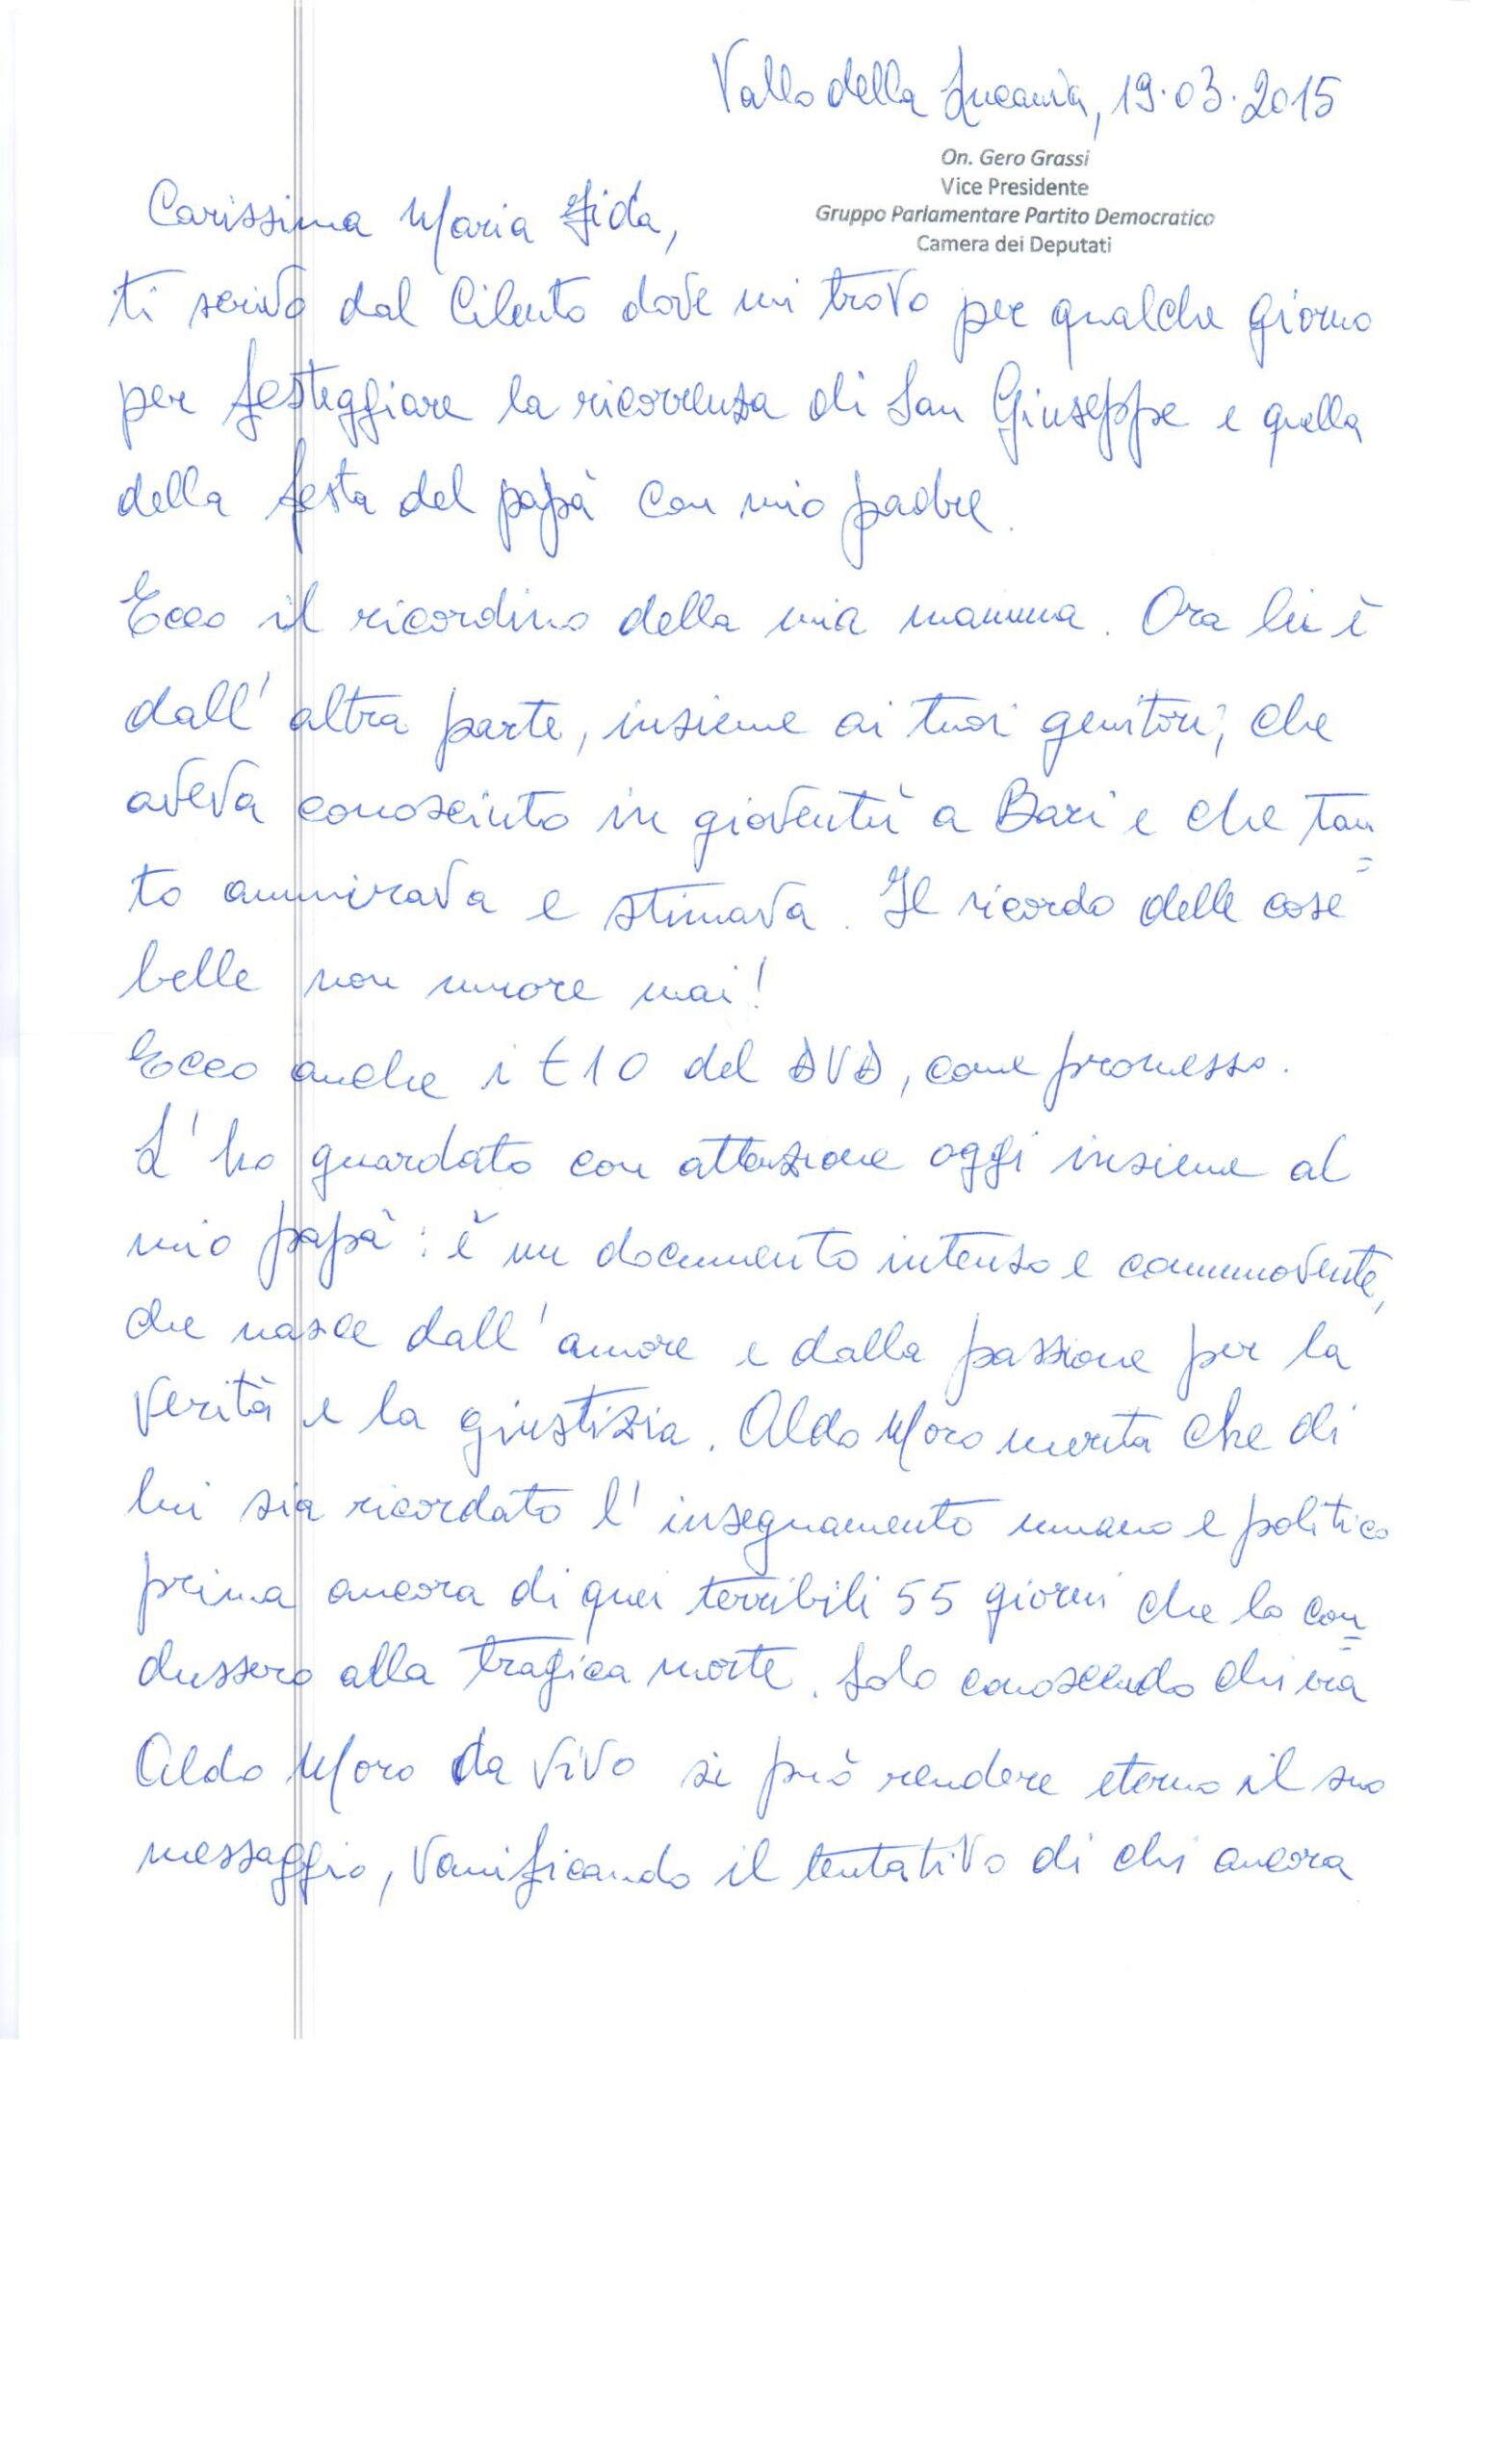 Vallo della Lucania, 19.03.2015
On. Gero Grassi
Vice Presidente
Gruppo Parlamentare Partito Democratico
Camera dei Deputati
Carissima Maria Fida,
ti scrivo dal Cilento dove mi trovo per qualche giorno
per festeggiare la ricorrenza di San Giuseppe e quella
della festa del papà con mio padre.
Ecco il ricordino della mia mamma. Ora lei è
dall'altra parte, insieme ai tuoi genitori, che
aveva conosciuto in gioventù a Bari e che tan=
to ammirava e stimava. Il ricordo delle cose
belle non muore mai!
Ecco anche i €10 del DVD, come promesso.
L'ho guardato con attenzione oggi insieme al
mio papà: è un documento intenso e commovente,
che nasce dall'amore e dalla passione per la
verità e la giustizia. Aldo Moro merita che di
lui sia ricordato l'insegnamento umano e politico
prima ancora di quei terribili 55 giorni che lo con=
dussero alla tragica morte. Solo conoscendo chi era
Aldo Moro da vivo si può rendere eterno il suo
messaggio, vanificando il tentativo di chi ancora